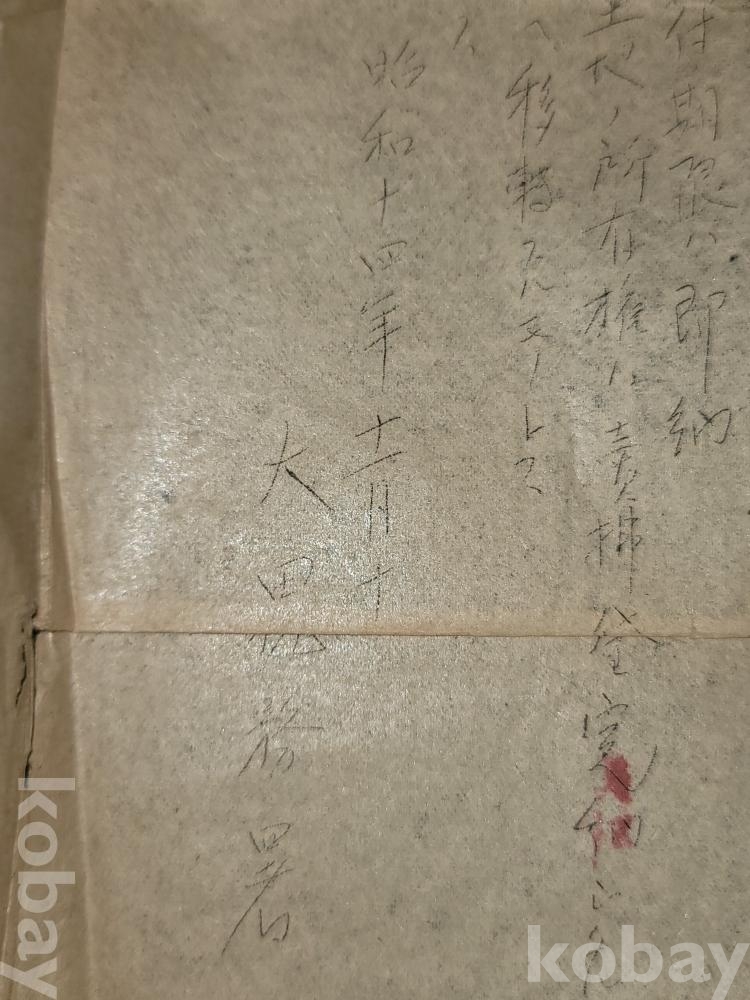 付期限ハ即納
土地ノ所有権ハ賣拂金完納
ヘ移転スルモノトス
昭和十四年十二月十
大田税務署
kobay
kobay